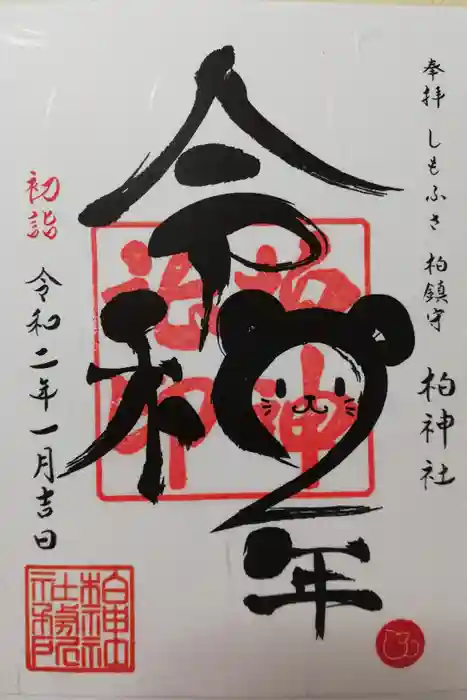 奉拝 しもふさ 柏鎮守 柏神社
令和2年
初詣
令和二年一月吉日
柏神社社務所印